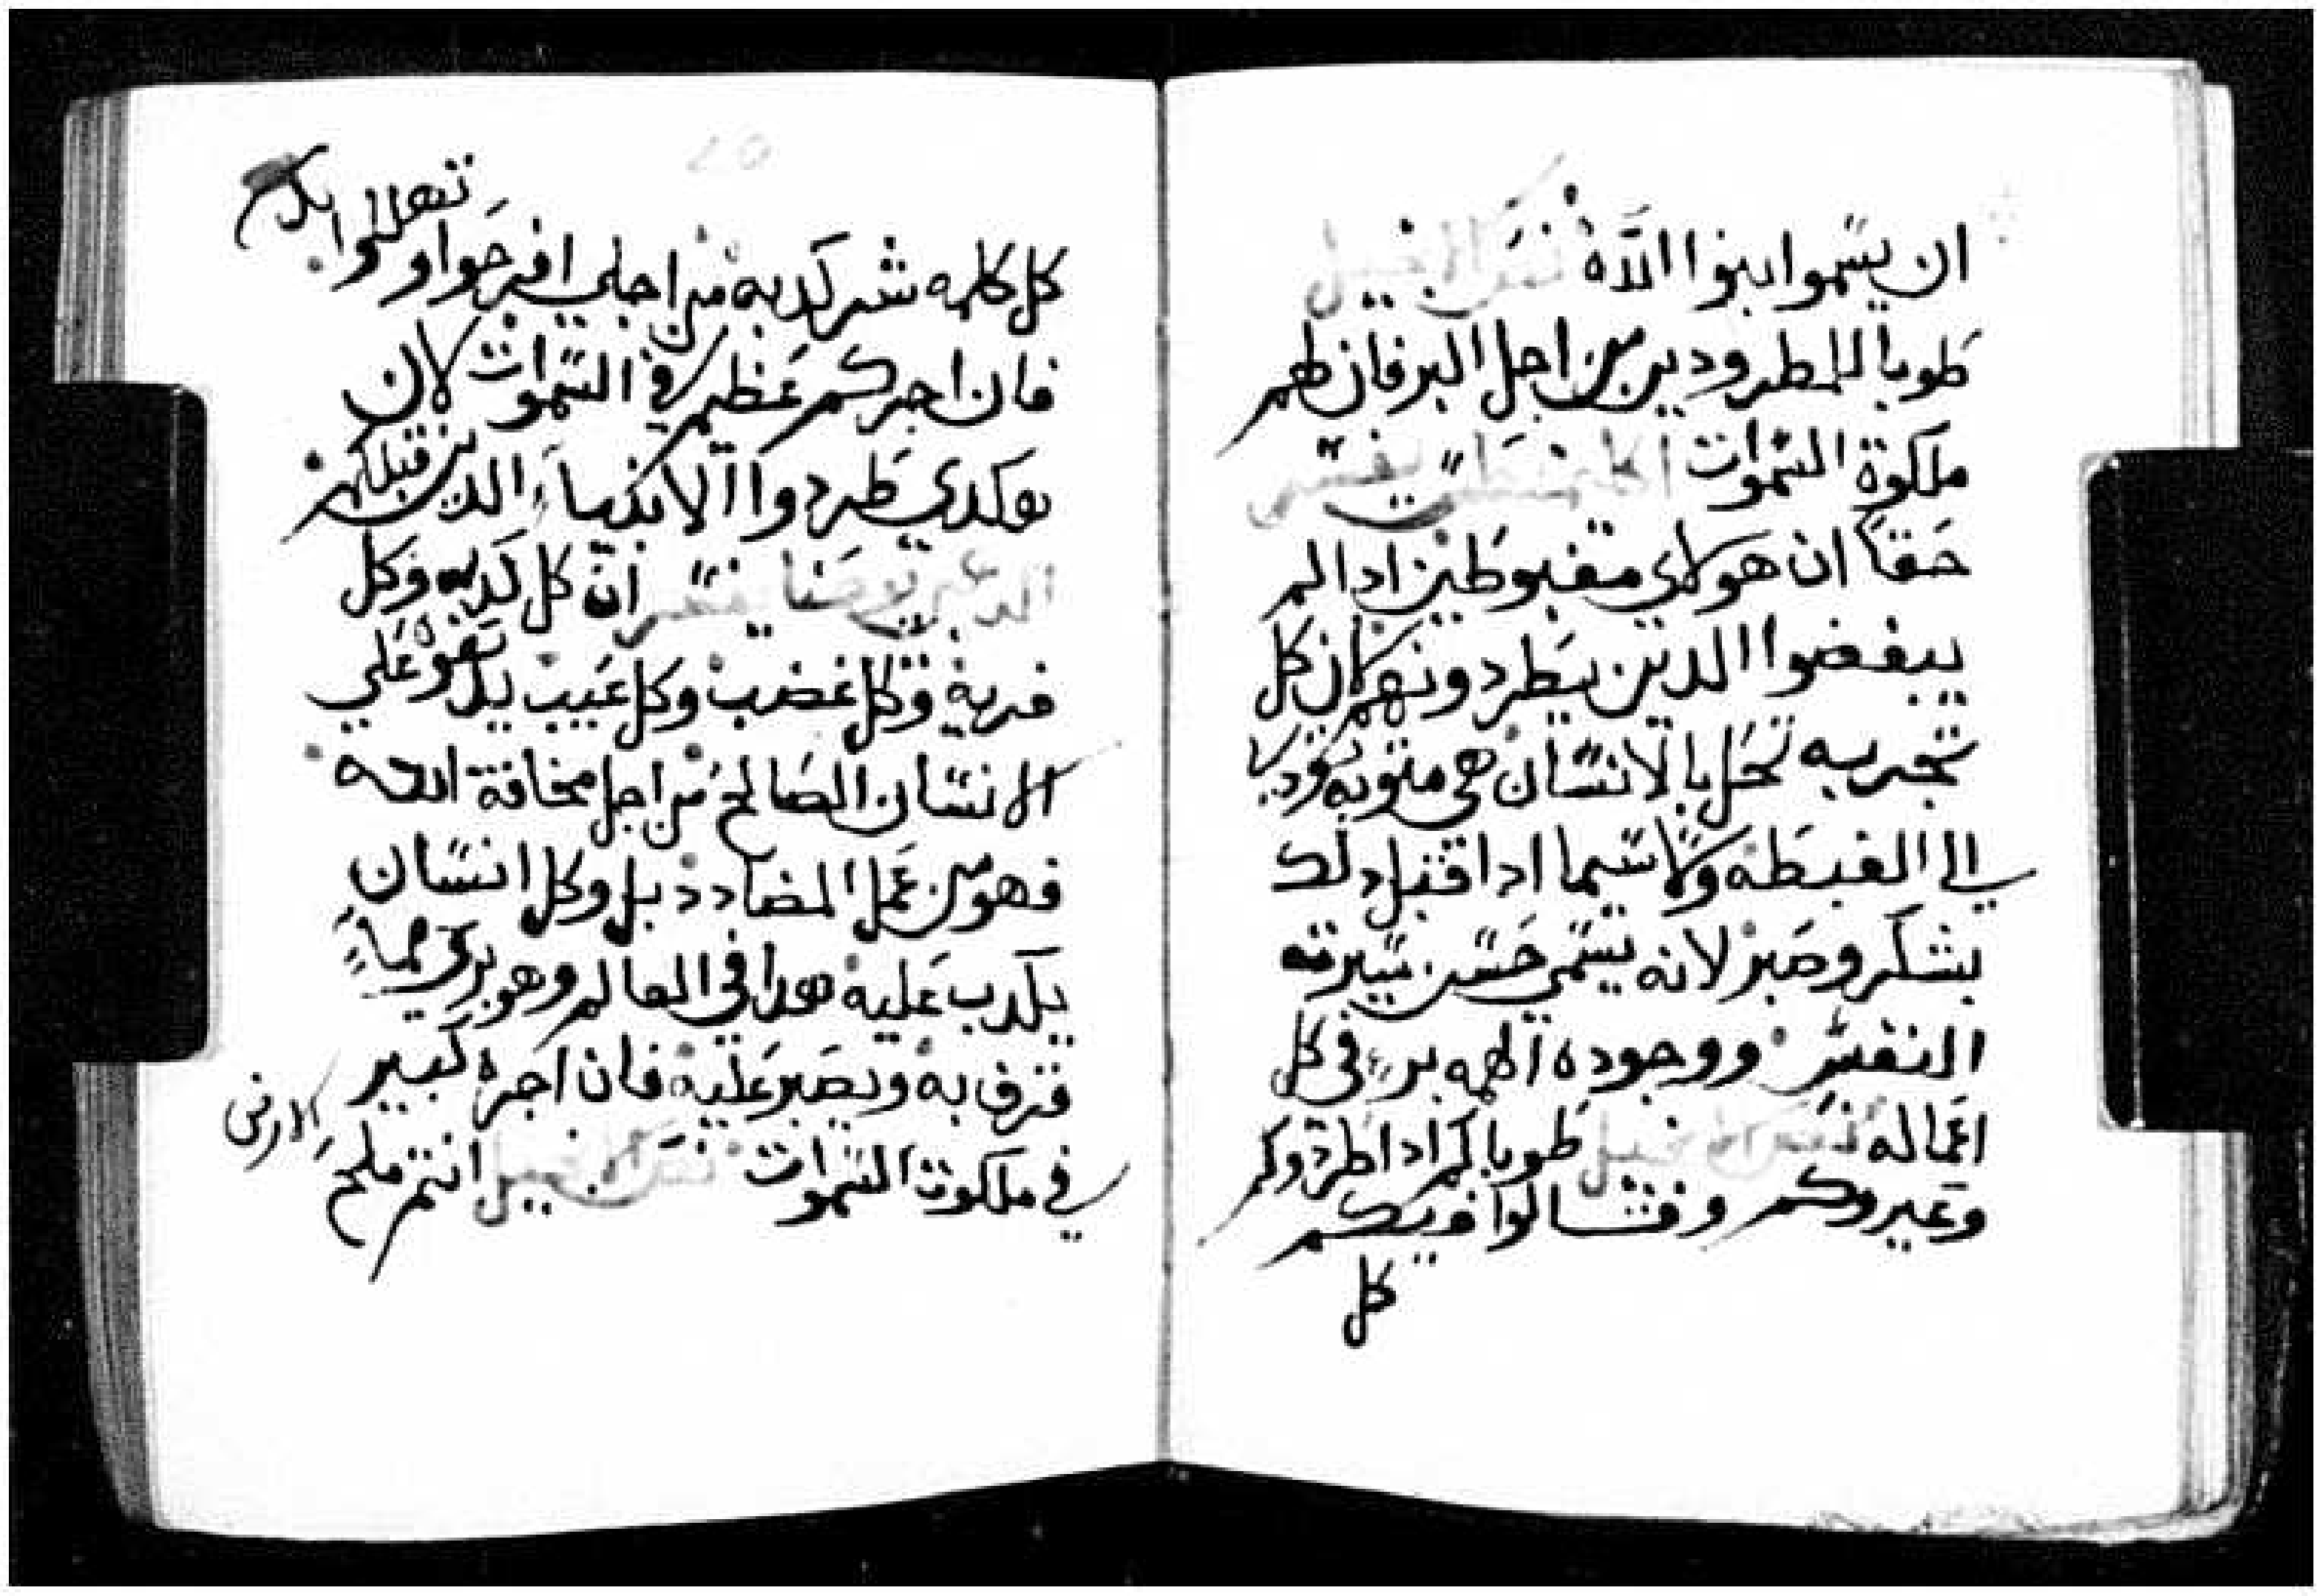 ان يسموا بنوا اللاه نص الانجيل
طوبا للمطرودين من اجل البر فان لهم
ملكوة السموات
حقا ان هولاي مغبوطين ادا لم
يبغضوا الدين يطردونهم لان كل
تجربه تحل بالانسان هي متوبه تودي
الي الغبطه ولا سيما ادا قبل دلك
بشكر وصبر لانه يسمي حسن سيرته
النفس ووجوده الهه بري في كل
اعماله نص الانجيل طوباكم ادا طردوكم
وعيروكم وقالوا فيكم
كل
كل كلمه شر كدبه من اجلي افرحوا وتهللوا
فان اجركم عظيم في السموات لان
هكدي طردوا الانبياء الدين قبلكم
يوحنا يفسر ان كل كدبه وكل
فريه وكل غضب وكل عيب علي
الانسان الصالح من اجل مخافة الله
فهو من عمل المضادد بل وكل انسان
يكدب عليه هدا في العالم وهو بري
به ويصبر عليه فان اجره كبير
في ملكوت السموات نص الانجيل انتم ملح الارض